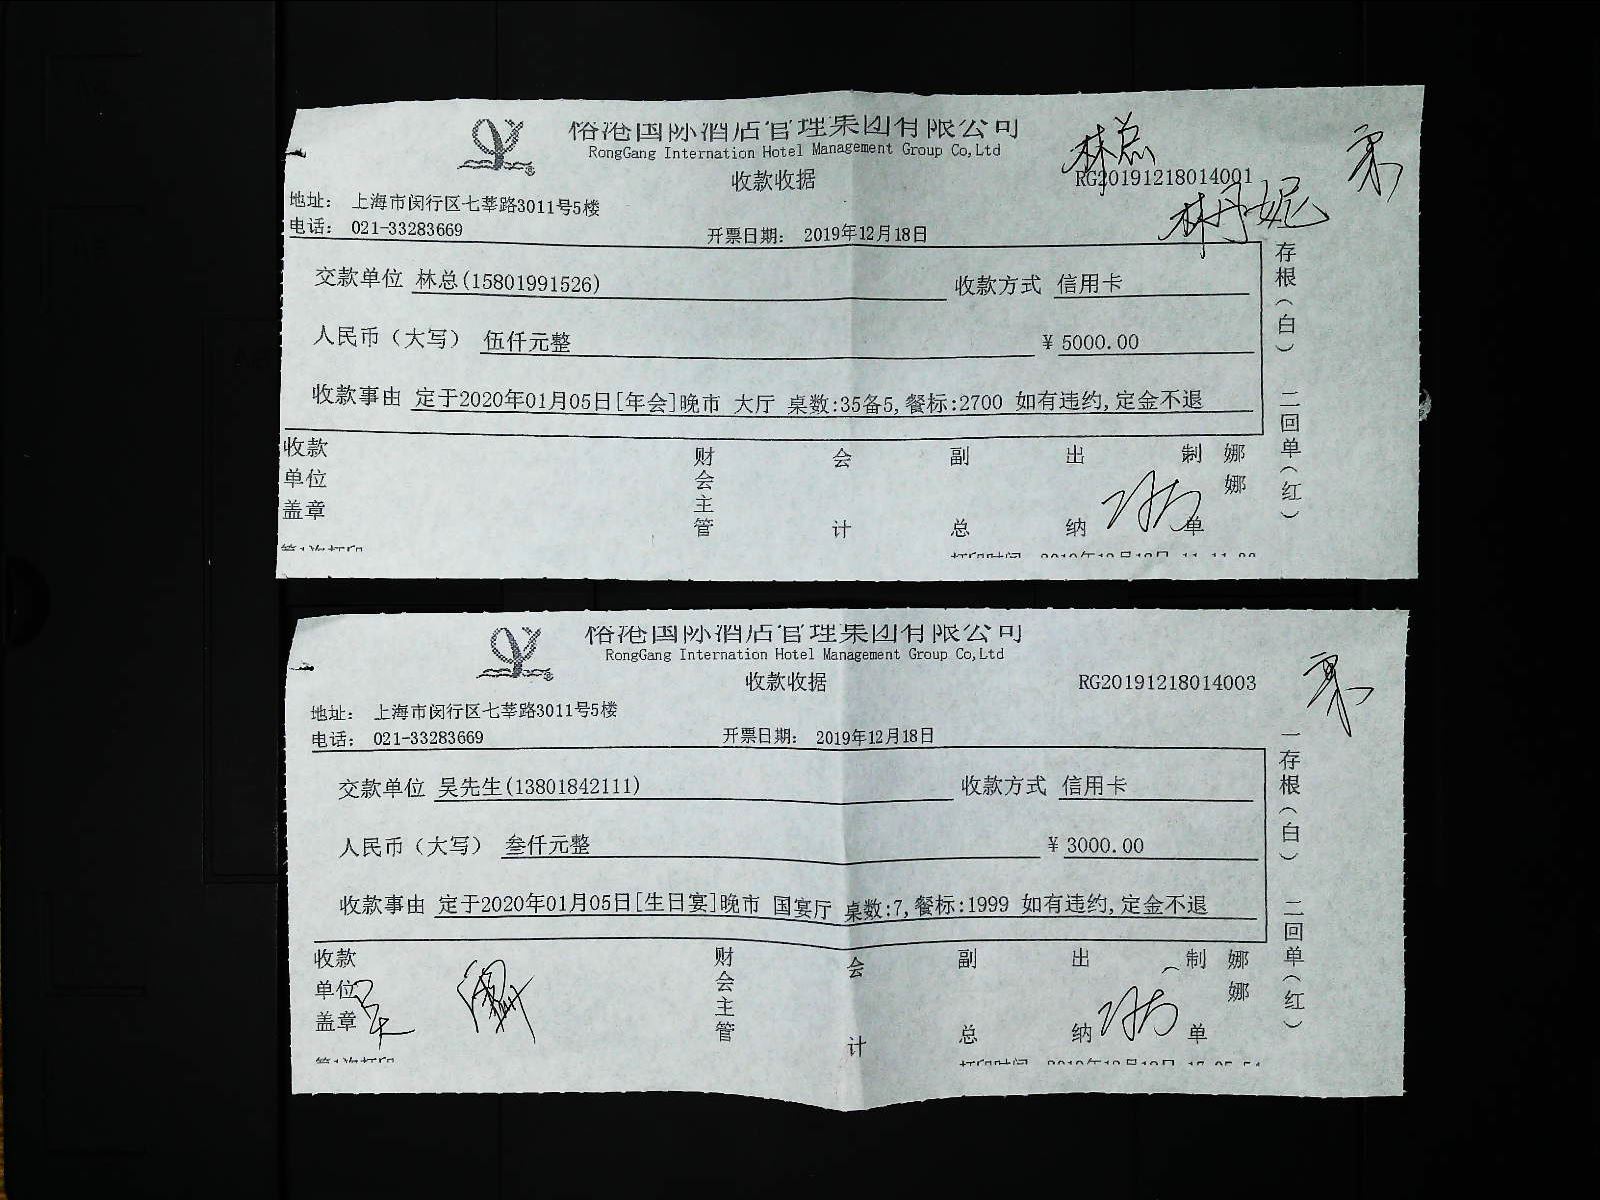 裕港国际酒店管理集团有限公司
RongGang Internation Hotel Management Group Co,Ltd
林总
收款收据
RG20191218014001
林丹妮
地址： 上海市闵行区七莘路3011号5楼
电话： 021-33283669
开票日期： 2019年12月18日
交款单位 林总(15801991526) 收款方式 信用卡
人民币（大写） 伍仟元整 ¥ 5000.00
收款事由 定于2020年01月05日[年会]晚市 大厅 桌数:35备5,餐标:2700 如有违约,定金不退
存根（白） 二回单（红）
收款单位盖章 财会主管 会计 副总 出纳 制单 娜娜
第1次打印 打印时间 2019年12月18日
裕港国际酒店管理集团有限公司
RongGang Internation Hotel Management Group Co,Ltd
收款收据
RG20191218014003
地址： 上海市闵行区七莘路3011号5楼
电话： 021-33283669
开票日期： 2019年12月18日
交款单位 吴先生(13801842111) 收款方式 信用卡
人民币（大写） 叁仟元整 ¥ 3000.00
收款事由 定于2020年01月05日[生日宴]晚市 国宴厅 桌数:7,餐标:1999 如有违约,定金不退
一存根（白） 二回单（红）
收款单位盖章 财会主管 会计 副总 出纳 制单 娜娜
第1次打印 打印时间 2019年12月18日